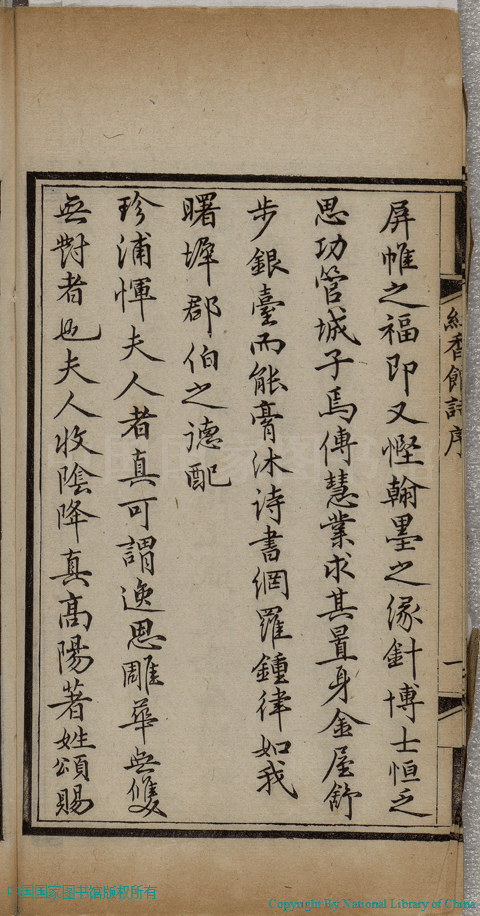 屏帷之福即又慳翰墨之緣針博士恒乏
思功管城子焉傳慧業求其置身金屋舒
步銀臺而能膏沐詩書網羅鍾律如我
曙墀郡伯之德配
珍浦惲夫人者真可謂逸思雕華無雙
無對者也夫人收陰降真高陽著姓頌賜
紅香館詩序
一
中国国家图书馆版权所有
Copyright By National Library of China